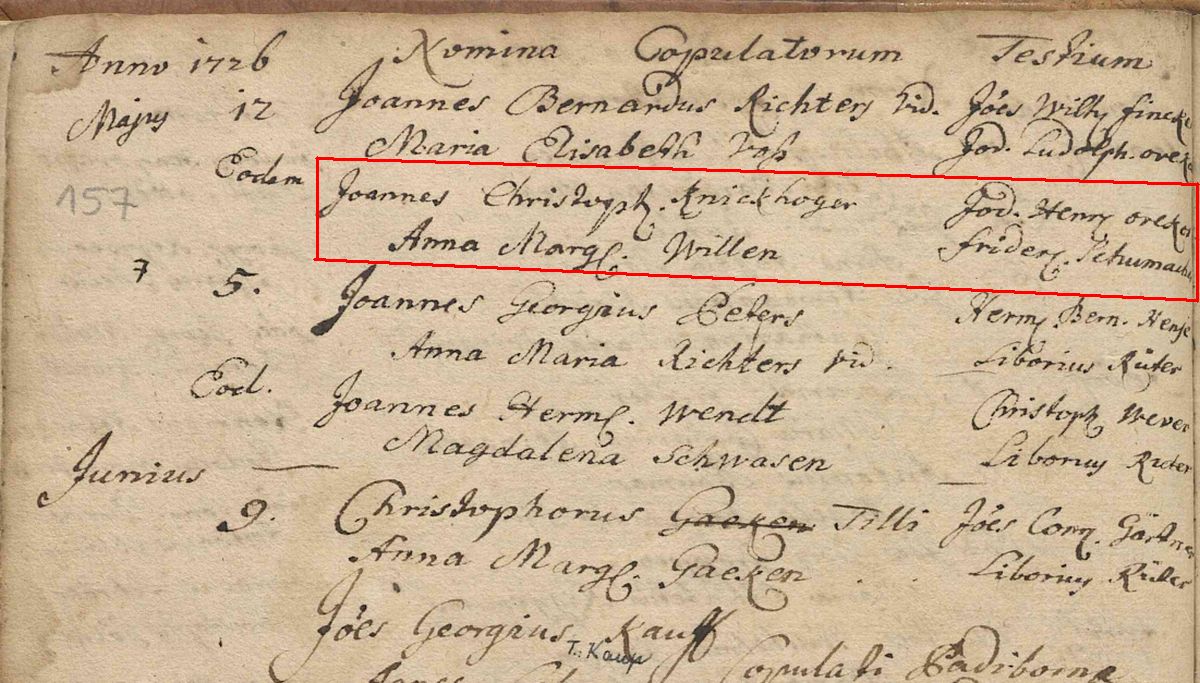 Anno 1726 Nomina Copulatorum Testium
Majus 12 Joannes Bernardus Richters vid. Jões Wilh
Maria Elisabeth Voß Jod. Ludolph.
Eodem Joannes Christoph. Knickhoger Jod. Henr.
157
Anna Marg. Willen Frider. Schumach
7 5. Joannes Georgius Peters Herm. Bern. Hense
Anna Maria Richters vid. Liborius Rüter
Eod. Joannes Herm. Wendt Christoph Wever
Magdalena Schwasen Liborius Ruter
Junius
9. Christophorus Gaeken Tilli Jões Conr. Gärtner
Anna Marg. Gaeken . . Liborius Rüter
Jões Georgius Kauff
T. Kaup
Copulati Padibornæ